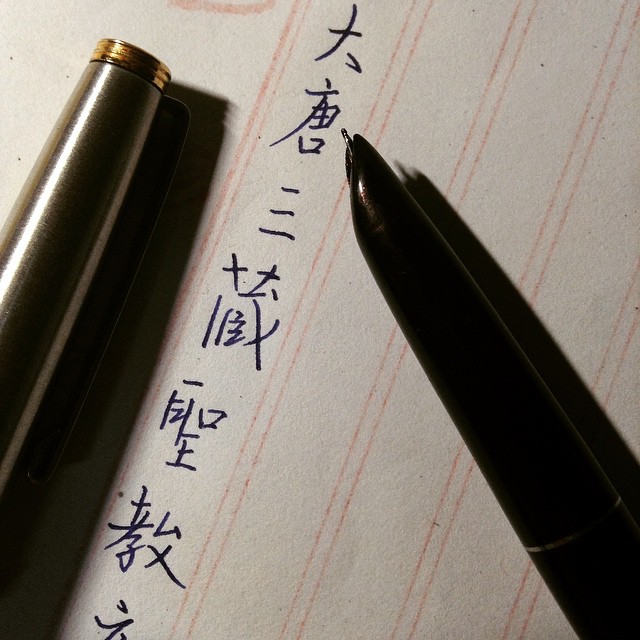 大唐三藏聖教